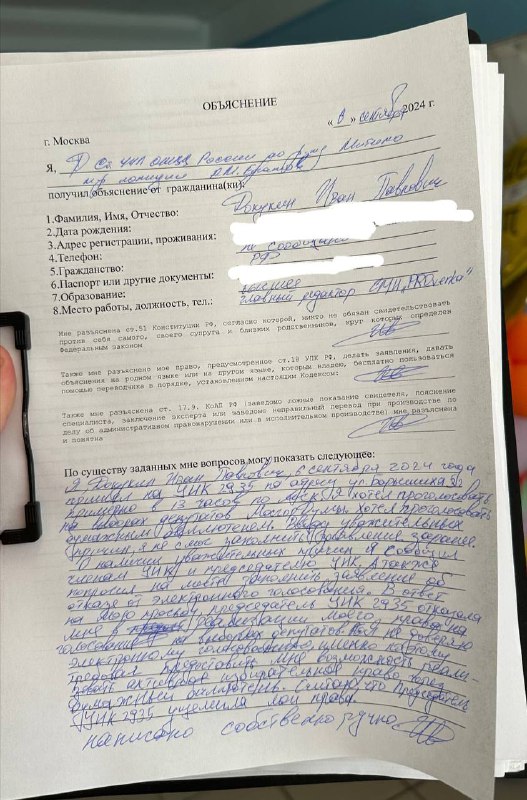 ОБЪЯСНЕНИЕ
« 6 » сентября 2024 г.
г. Москва
Я, УНП России по р-ну Митино
полиции
получил объяснение от гражданина(ки): Докукин Иван Павлович
1.Фамилия, Имя, Отчество:
2.Дата рождения:
3.Адрес регистрации, проживания:
4.Телефон: не сообщил
5.Гражданство: РФ
6.Паспорт или другие документы:
7.Образование: высшее
8.Место работы, должность, тел.: главный редактор СМИ
Мне разъяснена ст.51 Конституции РФ, согласно которой, никто не обязан свидетельствовать
против себя самого, своего супруга и близких родственников, круг которых определен
Федеральным законом
Также мне разъяснено мое право, предусмотренное ст.18 УПК РФ, делать заявления, давать
объяснения на родном языке или на другом языке, которым владею, бесплатно пользоваться
помощью переводчика в порядке, установленном настоящим Кодексом:
Также мне разъяснена ст. 17.9. КоАП РФ (заведомо ложные показание свидетеля, пояснение
специалиста, заключение эксперта или заведомо неправильный перевод при производстве по
делу об административном правонарушении или в исполнительном производстве) мне разъяснена
и понятна
По существу заданных мне вопросов могу показать следующее:
Я Докукин Иван Павлович, 6 сентября 2024 года
пришел на УИК 2935 по адресу ул Барышиха
примерно в 13 часов по мск. Я хотел проголосовать
на выборах депутатов Мосгордумы, хотел проголосовать
бумажным бюллетенем. Ввиду уважительных
причин, я не смог заполнить заявление заранее.
О наличии уважительных причин я сообщил
членам УИК и председателю УИК. А также
попросил на месте заполнить заявление об
отказе от электронного голосования. В ответ
на мою просьбу, председатель УИК 2935 отказала
мне в реализации моего права на
голосование на выборах депутатов. Я не доверяю
электронному голосованию, именно поэтому
требовал предоставить мне возможность реали-
зовать активное избирательное право через
бумажный бюллетень. Считаю, что председатель
УИК 2935 ущемила мои права.
написано собственноручно